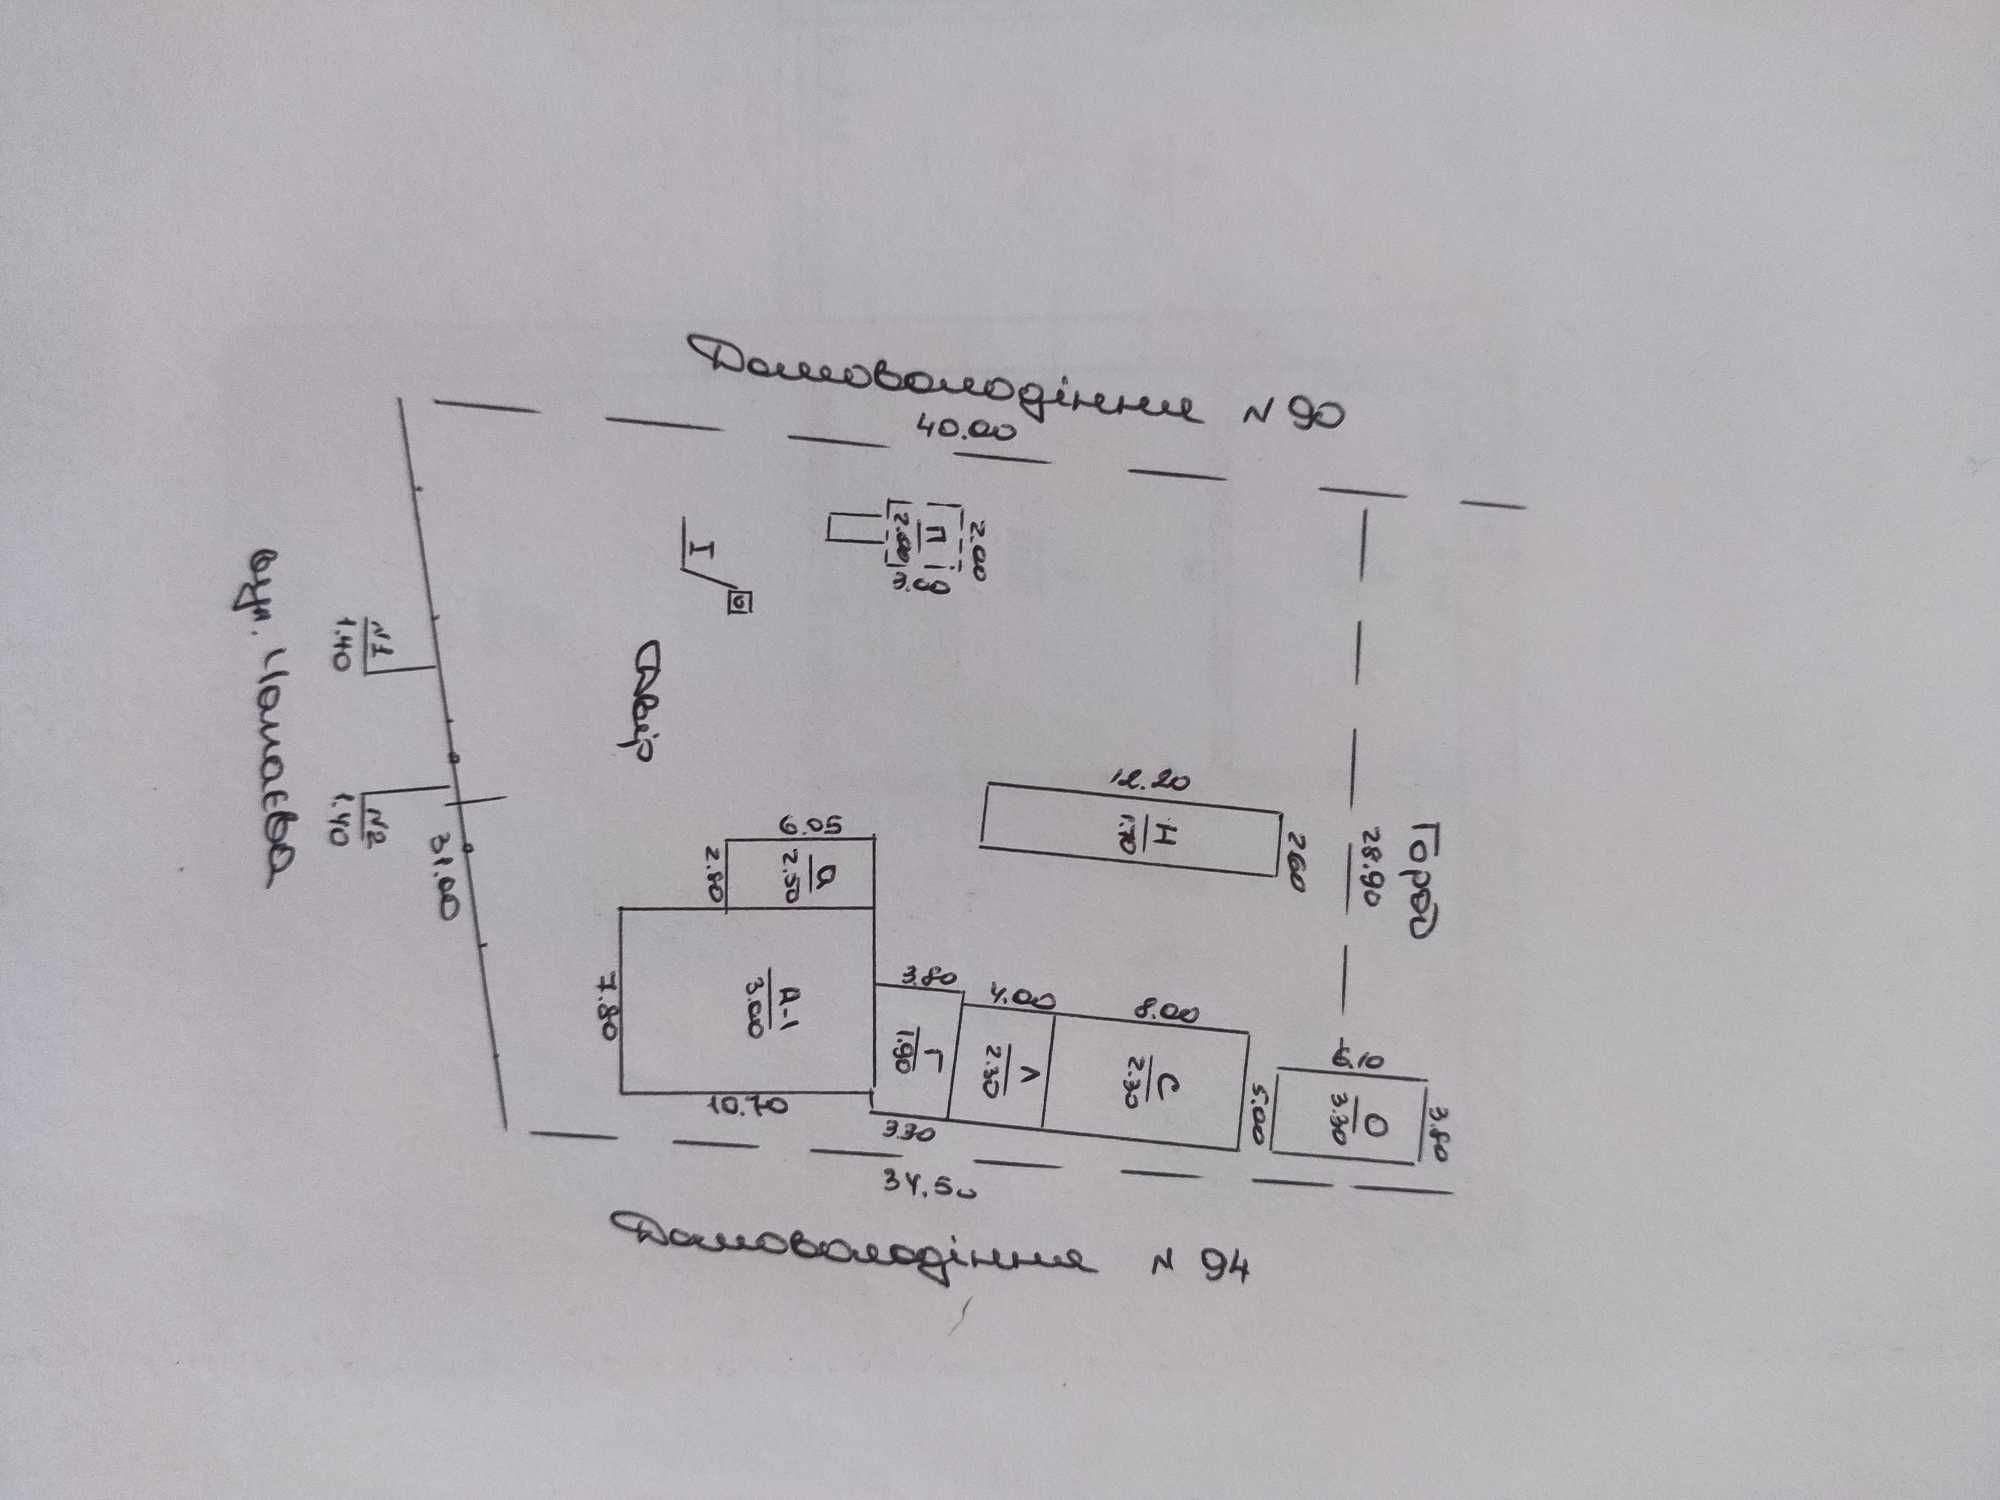 Домоволодіння N 90
40.00
вул. Чапаєва
N1
1.40
N2
1.40
31.00
I
П
2.00
2.00
3.00
Двір
12.20
Н
1.70
2.60
28.90
Город
6.05
2.80
а
2.50
7.80
А-1
3.00
10.70
3.80
Г
1.90
3.30
4.00
Л
2.30
8.00
С
2.30
5.00
6.10
О
3.30
3.80
34.50
Домоволодіння N 94